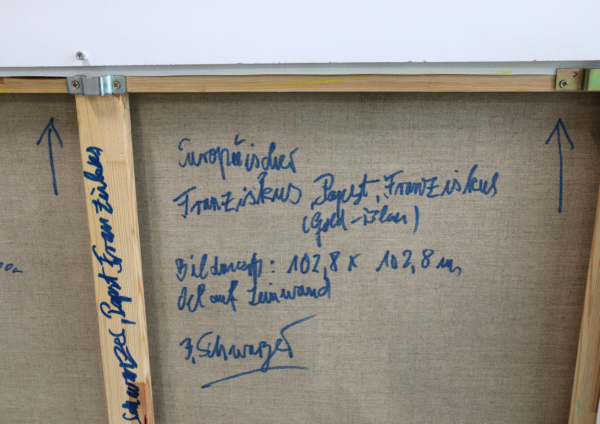 Europäischer
Franziskus, Papst, Franziskus
(Gold-Blau)
Bildmaß: 102,8 x 102,8 m
Oel auf Leinwand
Schwarzel
Schwarzel, Papst Franziskus